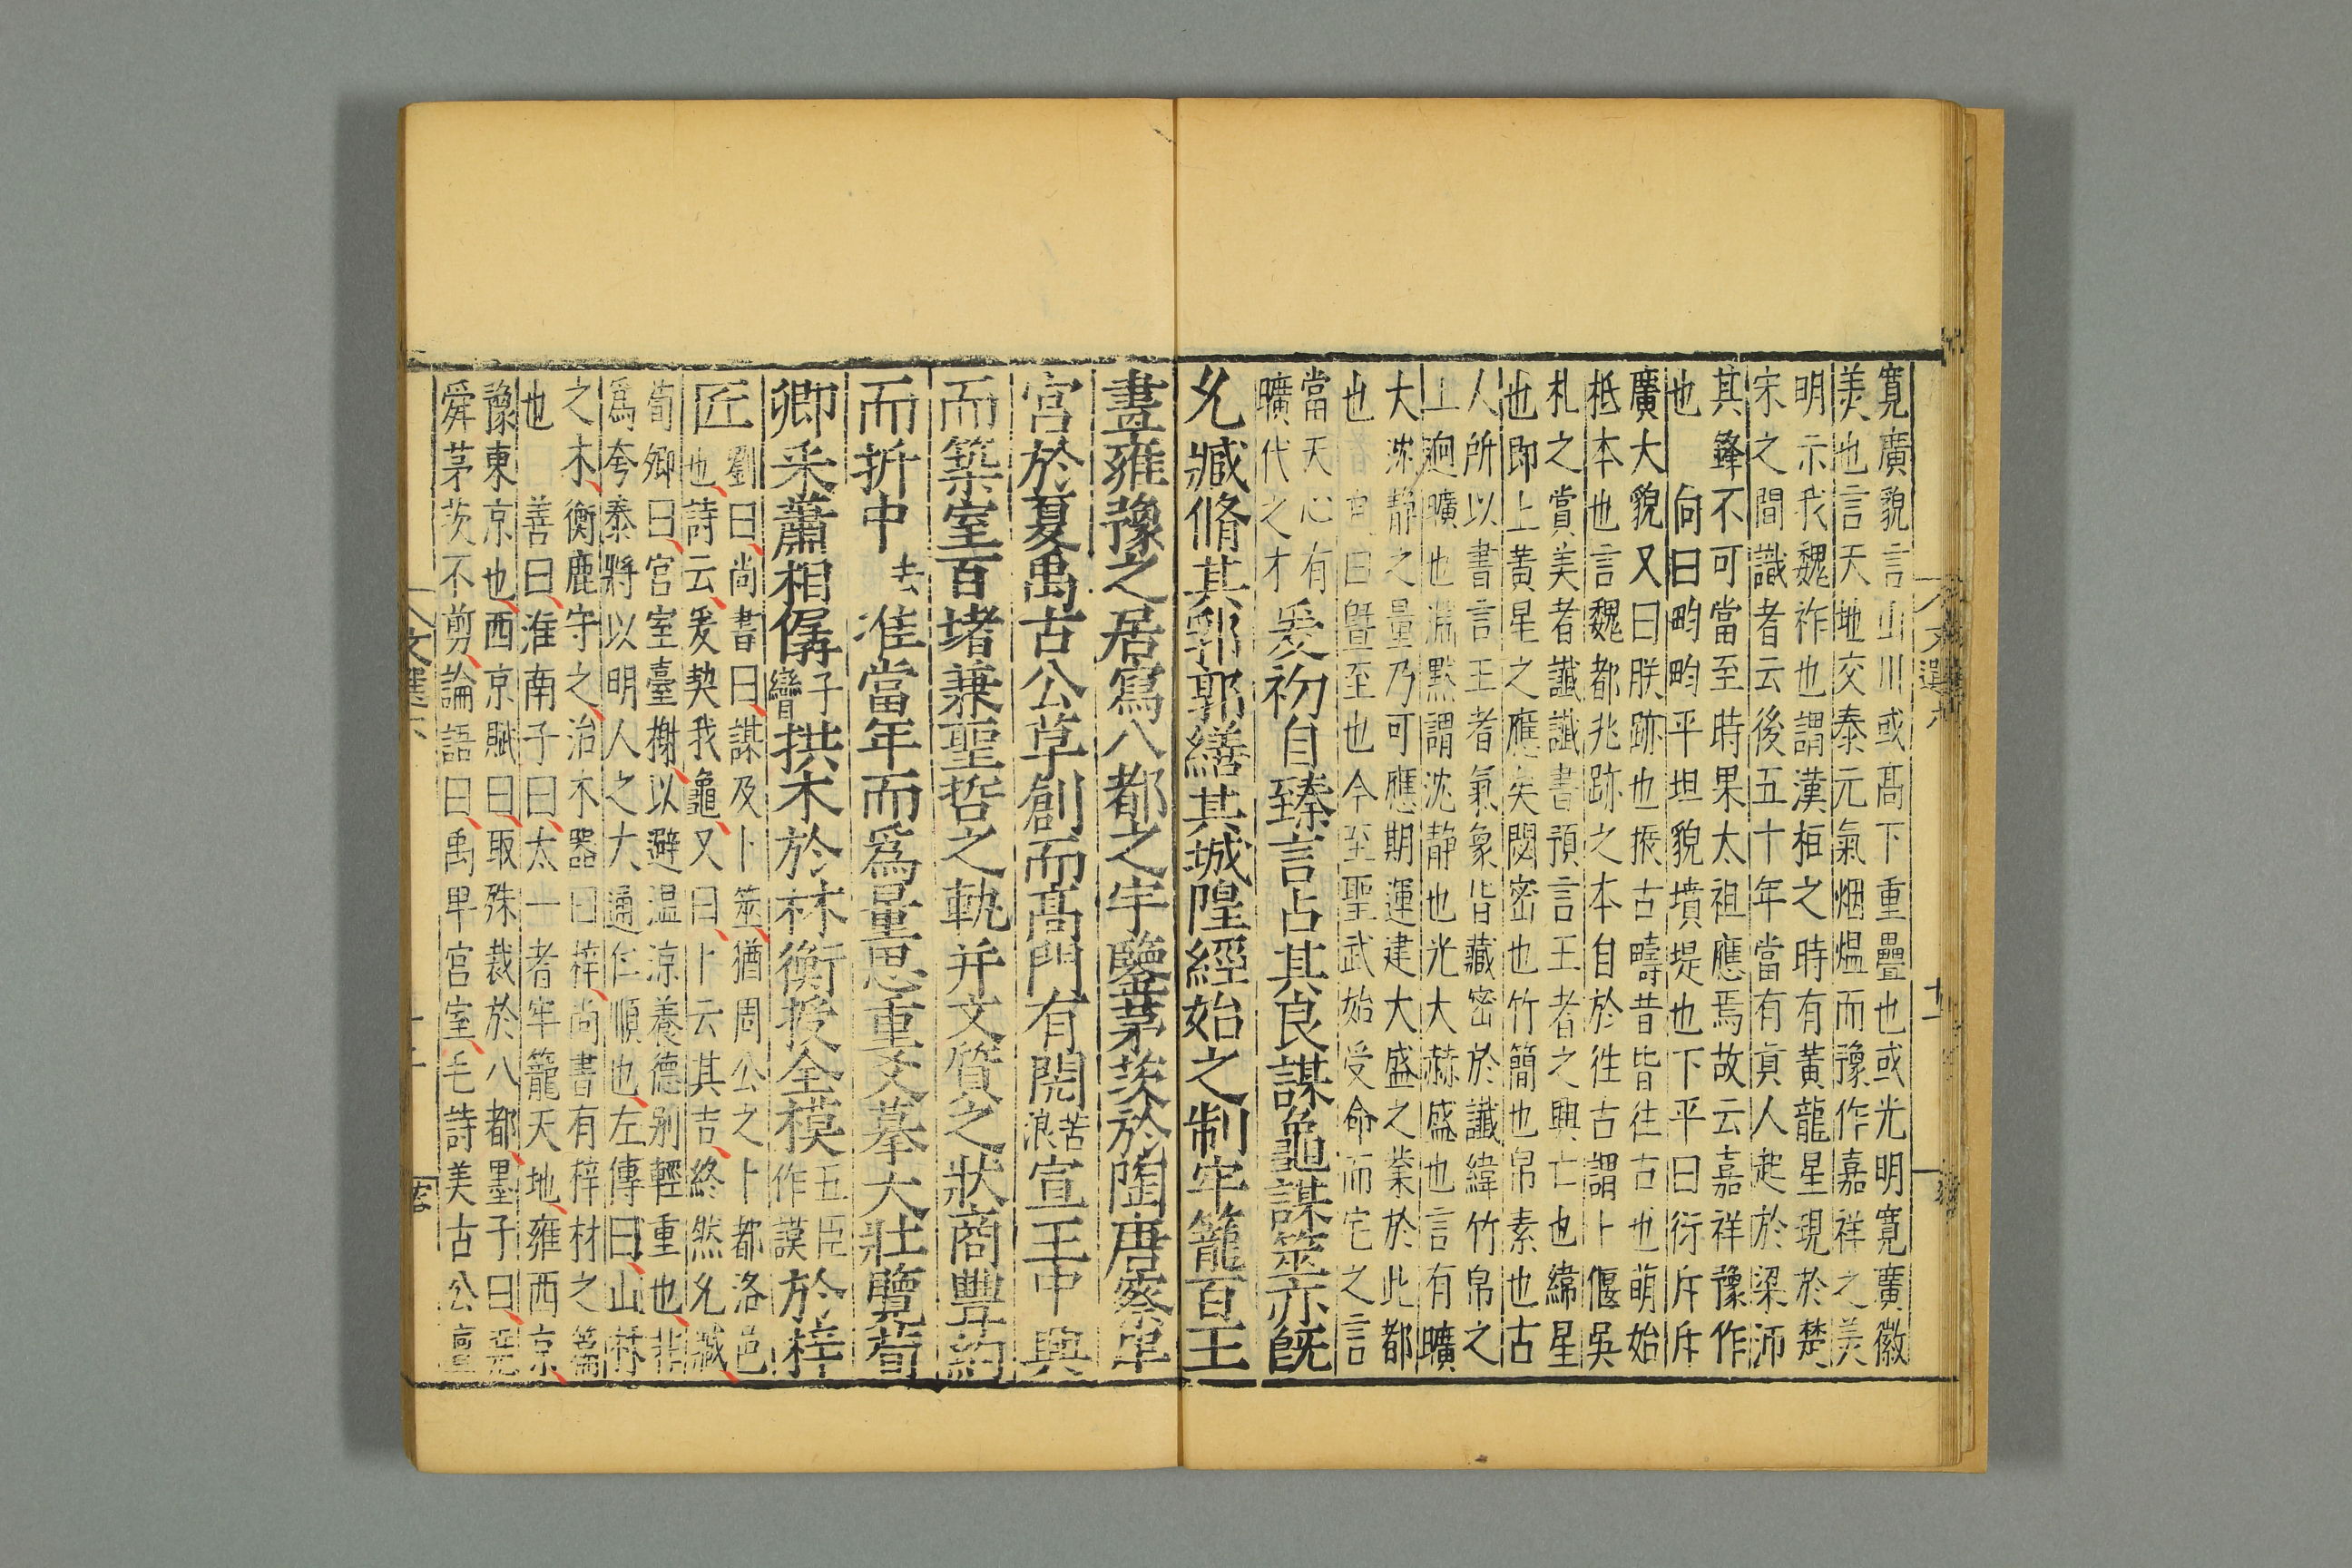 寬廣貌言山川或髙下重疊也或光明寬廣徽
美也言天地交泰元氣烟煴而豫作嘉祥之美
明示我魏祚也謂漢桓之時有黃龍星現於楚
宋之間識者云後五十年當有眞人起於梁沛
其鋒不可當至時果太祖應焉故云嘉祥豫作
也 向曰畇畇平坦貌墳堤也下平曰衍斥斥
廣大貌又曰朕跡也振古疇昔皆往古也萌始
柢本也言魏都兆跡之本自於徃古謂卜偃吳
札之賞美者讖讖書預言王者之興亡也緯星
也即上黃星之應矣閟密也竹簡也帛素也古
人所以書言王者氣象皆藏密於讖緯竹帛之
上迥曠也淵黙謂沈靜也光大赫盛也言有曠
大深靜之量乃可應期運建大盛之業於此都
也 曰曁至也今至聖武始受命而宅之言
當天心有
曠代之才
爰初自臻言占其良謀龜謀筮亦旣
允臧脩其郛郭繕其城隍經始之制牢籠百王
晝雍豫之居寫八都之宇鑒茅茨於陶唐察卑
宮於夏禹古公草創而髙門有閌苦浪宣王中興
而築室百堵兼聖哲之軌并文質之狀商豐約
而折中去准當年而爲量思重爻摹大壯覽荀
卿釆蕭相僝孱子戀拱木於林衡授全模五臣作謨於梓
匠
劉曰尚書曰謀及卜筮猶周公之卜都洛邑
也詩云爰契我龜又曰卜云其吉終然允臧
荀卿曰宮室臺榭以避温凉養德别輕重也非
爲夸泰將以明人之大通仁順也左傳曰山林
之木衡鹿守之治木器曰梓尚書有梓材之篇
也 善曰淮南子曰太一者牢籠天地雍西京
豫東京也西京賦曰取殊裁於八都墨子曰堯
舜茅茨不剪論語曰禹卑宮室毛詩美古公亶
文選六
十一